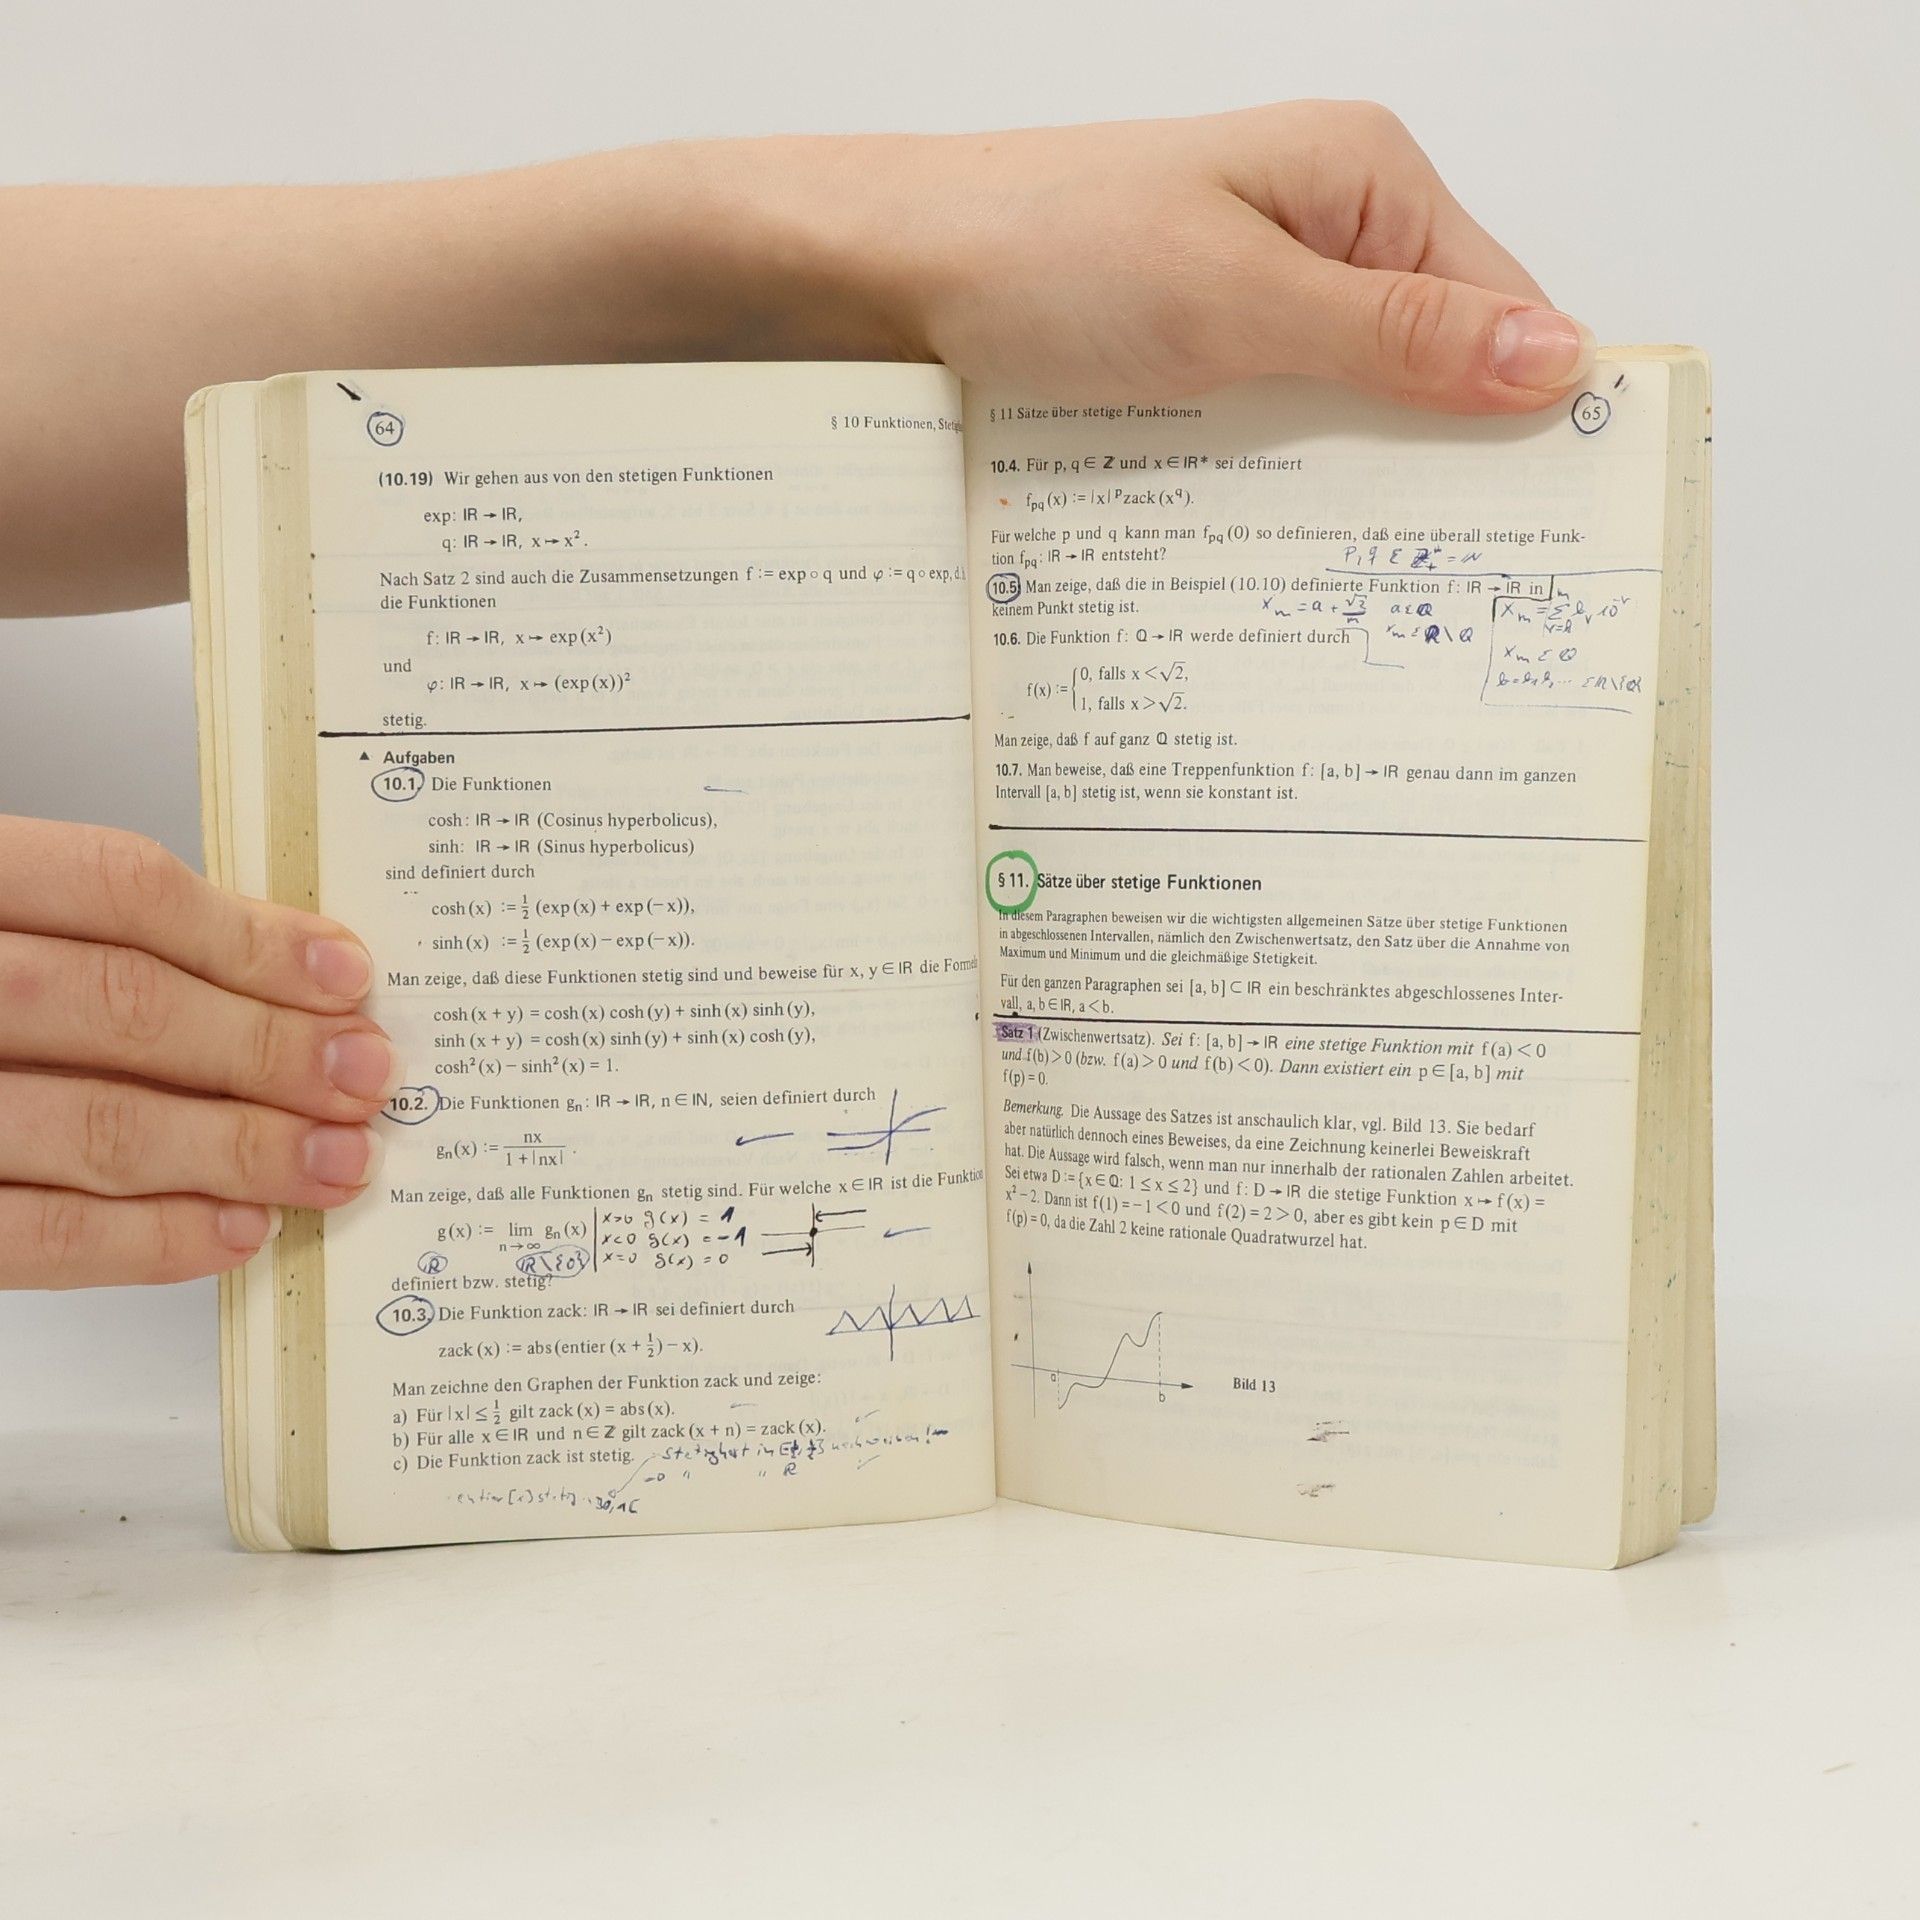 64
§ 10 Funktionen,
(10.19) Wir gehen aus von den stetigen Funktionen
exp: ℝ → ℝ,
q: ℝ → ℝ, x ↦ x².
Nach Satz 2 sind auch die Zusammensetzungen f := exp ∘ q und φ := q ∘ exp, d.h.
die Funktionen
f: ℝ → ℝ, x ↦ exp(x²)
und
φ: ℝ → ℝ, x ↦ (exp(x))²
stetig.
▲ Aufgaben
10.1. Die Funktionen
cosh: ℝ → ℝ (Cosinus hyperbolicus),
sinh: ℝ → ℝ (Sinus hyperbolicus)
sind definiert durch
cosh(x) := ½ (exp(x) + exp(−x)),
sinh(x) := ½ (exp(x) − exp(−x)).
Man zeige, daß diese Funktionen stetig sind und beweise für x, y ∈ ℝ die
cosh(x + y) = cosh(x) cosh(y) + sinh(x) sinh(y),
sinh(x + y) = cosh(x) sinh(y) + sinh(x) cosh(y),
cosh²(x) − sinh²(x) = 1.
10.2. Die Funktionen gₙ: ℝ → ℝ, n ∈ ℕ, seien definiert durch
gₙ(x) := nx / (1 + |nx|).
Man zeige, daß alle Funktionen gₙ stetig sind. Für welche x ∈ ℝ ist die Funktion
x>0 g(x) = 1
g(x) := lim gₙ(x) x<0 g(x) = -1
n→∞
x=0 g(x) = 0
ℝ ℝ\{0}
definiert bzw. stetig?
10.3. Die Funktion zack: ℝ → ℝ sei definiert durch
zack(x) := abs(entier(x + ½) − x).
Man zeichne den Graphen der Funktion zack und zeige:
a) Für |x| ≤ ½ gilt zack(x) = abs(x).
b) Für alle x ∈ ℝ und n ∈ ℤ gilt zack(x + n) = zack(x).
c) Die Funktion zack ist stetig.
§ 11 Sätze über stetige Funktionen
65
10.4. Für p, q ∈ ℤ und x ∈ ℝ* sei definiert
f_pq(x) := |x|ᵖ zack(x^q).
Für welche p und q kann man f_pq(0) so definieren, daß eine überall stetige Funk-
tion f_pq: ℝ → ℝ entsteht?
10.5. Man zeige, daß die in Beispiel (10.10) definierte Funktion f: ℝ → ℝ in
keinem Punkt stetig ist.
10.6. Die Funktion f: ℚ → ℝ werde definiert durch
f(x) := {0, falls x < √2,
1, falls x > √2.
Man zeige, daß f auf ganz ℚ stetig ist.
10.7. Man beweise, daß eine Treppenfunktion f: [a, b] → ℝ genau dann im ganzen
Intervall [a, b] stetig ist, wenn sie konstant ist.
§ 11. Sätze über stetige Funktionen
In diesem Paragraphen beweisen wir die wichtigsten allgemeinen Sätze über stetige Funktionen
in abgeschlossenen Intervallen, nämlich den Zwischenwertsatz, den Satz über die Annahme von
Maximum und Minimum und die gleichmäßige Stetigkeit.
Für den ganzen Paragraphen sei [a, b] ⊂ ℝ ein beschränktes abgeschlossenes Inter-
vall, a, b ∈ ℝ, a < b.
Satz 1 (Zwischenwertsatz). Sei f: [a, b] → ℝ eine stetige Funktion mit f(a) < 0
und f(b) > 0 (bzw. f(a) > 0 und f(b) < 0). Dann existiert ein p ∈ [a, b] mit
f(p) = 0.
Bemerkung. Die Aussage des Satzes ist anschaulich klar, vgl. Bild 13. Sie bedarf
aber natürlich dennoch eines Beweises, da eine Zeichnung keinerlei Beweiskraft
hat. Die Aussage wird falsch, wenn man nur innerhalb der rationalen Zahlen arbeitet.
Sei etwa D := {x ∈ ℚ: 1 ≤ x ≤ 2} und f: D → ℝ die stetige Funktion x ↦ f(x) =
x² − 2. Dann ist f(1) = −1 < 0 und f(2) = 2 > 0, aber es gibt kein p ∈ D mit
f(p) = 0, da die Zahl 2 keine rationale Quadratwurzel hat.
a
b
Bild 13